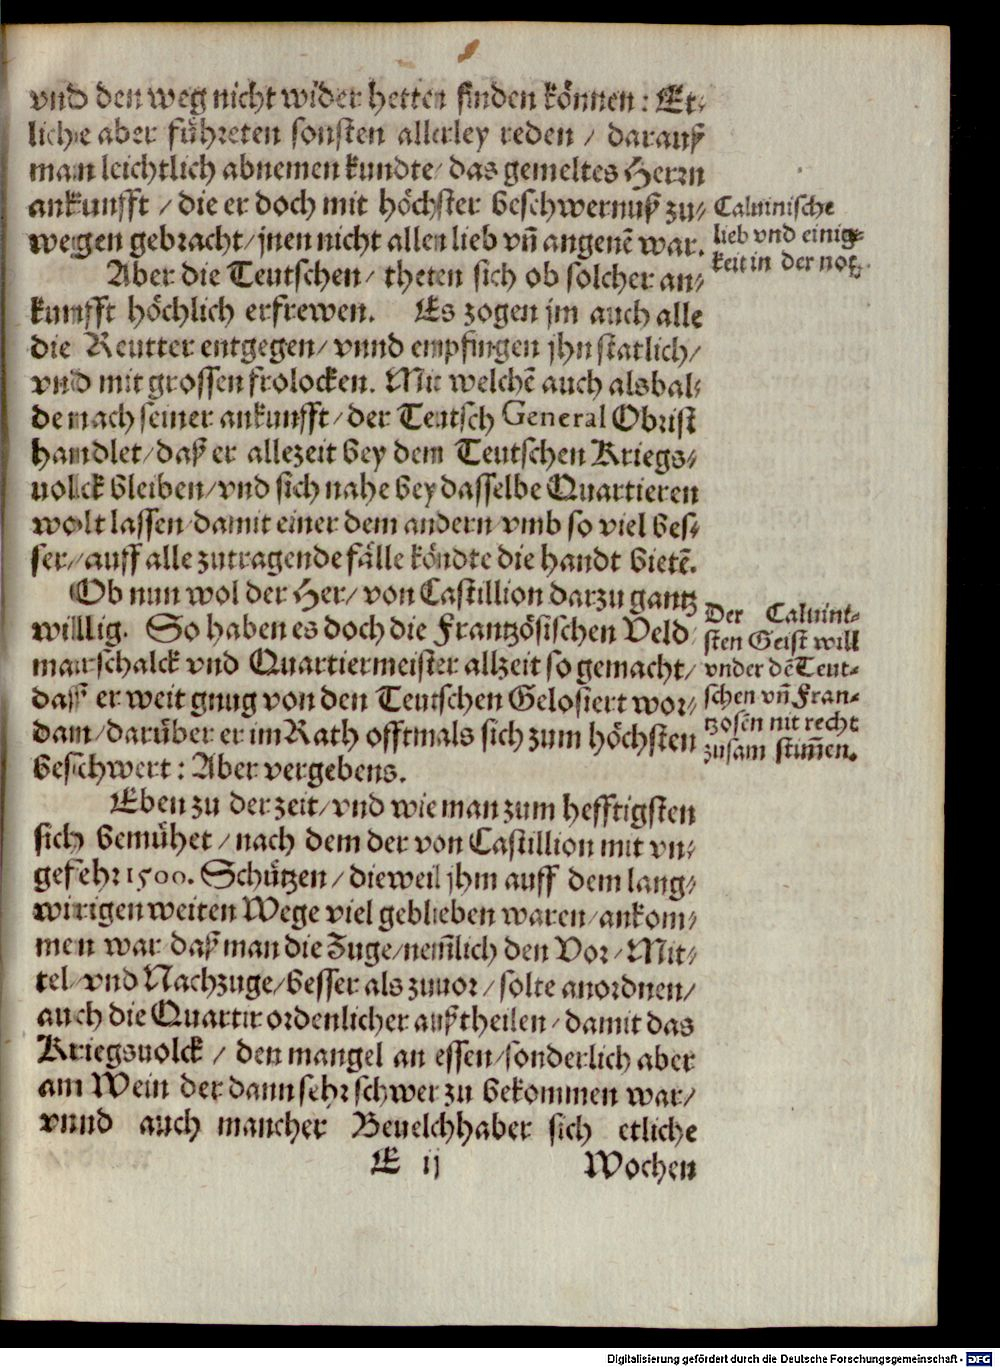 vnd den weg nicht wider hetten finden können: Et⸗
liche aber führeten sonsten allerley reden / darauß
man leichtlich abnemen kundte / das gemeltes Herrn
ankunfft / die er doch mit höchster beschwernuß zu⸗
wegen gebracht / jnen nicht allen lieb vn̄ angenē war.
Caluinische
lieb vnd einig⸗
keit in der not.
Aber die Teutschen / theten sich ob solcher an⸗
kunfft höchlich erfrewen. Es zogen jm auch alle
die Reutter entgegen / vnnd empfingen jhn statlich /
vnd mit grossen frolocken. Mit welchē auch alsbal⸗
de nach seiner ankunfft / der Teutsch General Obrist
handlet / daß er allezeit bey dem Teutschen Kriegs⸗
uolck bleiben / vnd sich nahe bey dasselbe Quartieren
wolt lassen / damit einer dem andern vmb so viel bes⸗
ser / auff alle zutragende fälle köndte die handt bietē.
Ob nun wol der Her / von Castillion darzu gantz
willig. So haben es doch die Frantzösischen Veld⸗
marschalck vnd Quartiermeister allzeit so gemacht /
dass er weit gnug von den Teutschen Gelosiert wor⸗
dam / darüber er im Rath offtmals sich zum höchsten
beschwert: Aber vergebens.
Der Caluini⸗
sten Geist will
vnder dē Teut⸗
schen vn̄ Fran⸗
tzosen nit recht
zusam stim̄en.
Eben zu der zeit / vnd wie man zum hefftigsten
sich bemühet / nach dem der von Castillion mit vn⸗
gefehr 1500. Schützen / dieweil jhm auff dem lang⸗
wirigen weiten Wege viel geblieben waren / ankom⸗
men war daß man die Züge / nem̄lich den Vor / Mit⸗
tel / vnd Nachzuge / besser als zuuor / solte anordnen /
auch die Quartir ordenlicher außtheilen / damit das
Kriegsuolck / den mangel an essen / sonderlich aber
am Wein der dann sehr schwer zu bekommen war /
vnnd auch mancher Beuelchhaber sich etliche
E ij Wochen
Digitalisierung gefördert durch die Deutsche Forschungsgemeinschaft - DFG